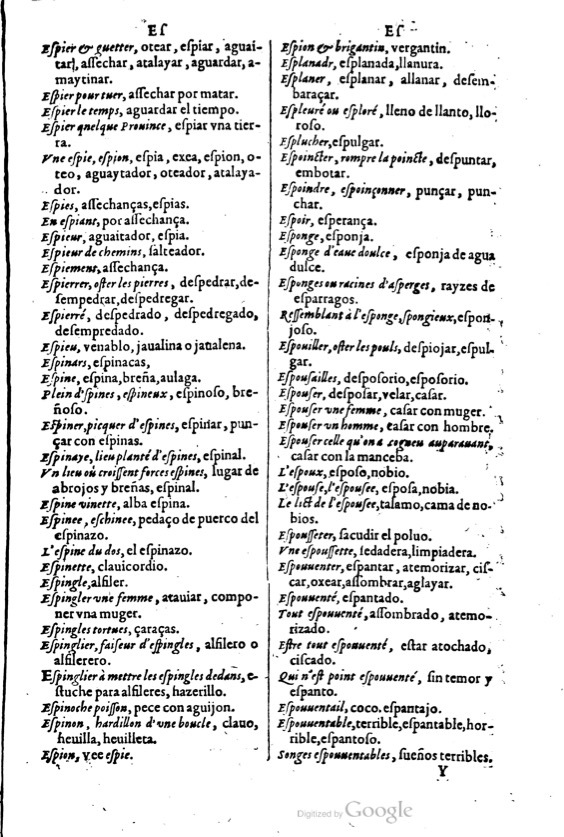 Eſ
Eſpier & guetter, otear, eſpiar, aguai-
tar, aſſechar, atalayar, aguardar, a-
maytinar.
Eſpier pour tuer, aſſechar por matar.
Eſpier le temps, aguardar el tiempo.
Eſpier quelque Prouince, eſpiar vna tier-
ra.
Vne eſpie, eſpion, eſpia, exea, eſpion, o-
teo, aguaytador, oteador, atalaya-
dor.
Eſpies, aſſechanças, eſpias.
En eſpiant, por aſſechança.
Eſpieur, aguaitador, eſpia.
Eſpieur de chemins, ſalteador.
Eſpiement, aſſechança.
Eſpierrer, oſter les pierres, deſpedrar, de-
ſempedrar, deſpedregar.
Eſpierré, deſpedrado, deſpedregado,
deſempredado.
Eſpieu, venablo, jaualina o jaualena.
Eſpinars, eſpinacas,
Eſpine, eſpina, breña, aulaga.
Plein d'eſpines, eſpineux, eſpinoſo, bre-
ñoſo.
Eſpiner, picquer d'eſpines, eſpinar, pun-
çar con eſpinas.
Eſpinaye, lieu planté d'eſpines, eſpinal.
Vn lieu où croiſſent forces eſpines, lugar de
abrojos y breñas, eſpinal.
Eſpine vinette, alba eſpina.
Eſpinee, eſchinee, pedaço de puerco del
eſpinazo.
L'eſpine du dos, el eſpinazo.
Eſpinette, clauicordio.
Eſpingle, alfiler.
Eſpingler vne femme, atauiar, compo-
ner vna muger.
Eſpingles tortues, çaraças.
Eſpinglier, faiſeur d'eſpingles, alfilero o
alfilerero.
Eſpinglier à mettre les eſpingles dedans, e-
ſtuche para alfileres, hazerillo.
Eſpinoche poiſſon, pece con aguijon.
Eſpinon, hardillon d'vne boucle, clauo,
heuilla, heuilleta.
Eſpion, vee eſpie.
Eſ
Eſpion & brigantin, vergantin.
Eſplanadr, eſplanada, llanura.
Eſplaner, eſplanar, allanar, deſem-
baraçar.
Eſpleuré ou eſploré, lleno de llanto, llo-
roſo.
Eſplucher, eſpulgar.
Eſpoincter, rompre la poincte, deſpuntar,
embotar.
Eſpoindre, eſpoinçonner, punçar, pun-
char.
Eſpoir, eſperança.
Eſponge, eſponja.
Eſponge d'eaue doulce, eſponja de agua
dulce.
Eſponges ou racines d'aſperges, rayzes de
eſparragos.
Reſſemblant à l'eſponge, ſpongieux, eſpon-
joſo.
Eſpouiller, oſter les pouls, deſpiojar, eſpul-
gar.
Eſpouſailles, deſpoſorio, eſpoſorio.
Eſpouſer, deſpoſar, velar, caſar.
Eſpouſer vne femme, caſar con muger.
Eſpouſer vn homme, caſar con hombre.
Eſpouſer celle qu'on a cogneu auparauant,
caſar con la manceba.
L'eſpoux, eſpoſo, nobio.
L'eſpouſe, l'eſpouſee, eſpoſa, nobia.
Le lict de l'eſpouſee, talamo, cama de no-
bios.
Eſpouſſeter, ſacudir el poluo.
Vne eſpouſſette, ſedadera, limpiadera.
Eſpouuenter, eſpantar, atemorizar, ciſ-
car, oxear, aſſombrar, aglayar.
Eſpouuenté, eſpantado.
Tout eſpouuenté, aſſombrado, atemo-
rizado.
Eſtre tout eſpouuenté, eſtar atochado,
ciſcado.
Qui n'eſt point eſpouuenté, ſin temor y
eſpanto.
Eſpouuentail, coco. eſpantajo.
Eſpouuentable, terrible, eſpantable, hor-
rible, eſpantoſo.
Songes eſpouuentables, ſueños terribles.
Y
Digitized by Google